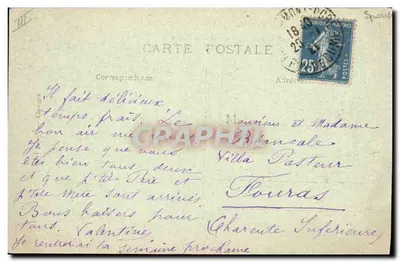 CARTE POSTALE
Correspondance
25
Il fait délicieux
temps frais. Le
bon air
Je pense que vous
êtes bien tous deux
et que p'tit Père et
p'tite Mère sont arrivés.
Bons baisers pour
tous. Valentine
Je rentrerai la semaine prochaine
Monsieur et Madame
Villa Pasteur
Fouras
(Charente Inférieure)
CARTORUM